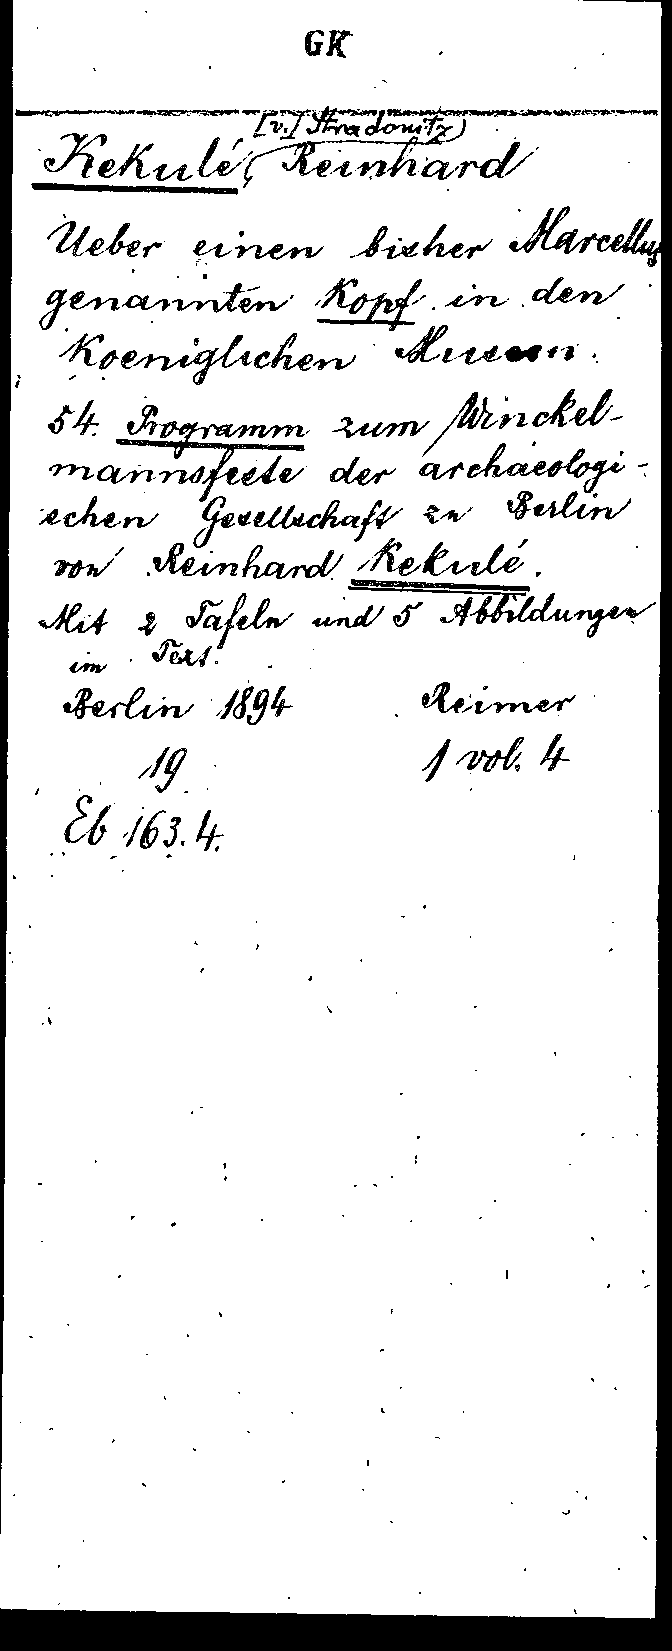 GK
[v.] Stradonitz)
Kekulé, Reinhard
Ueber einen bisher Marcellus
genannten Kopf in den
Koeniglichen Museen.
54. Programm zum Winckel-
mannsfeste der archaeologi-
schen Gesellschaft zu Berlin
von Reinhard Kekulé.
Mit 2 Tafeln und 5 Abbildungen
im Text.
Berlin 1894 Reimer
19 1 vol. 4
Eb 163.4.